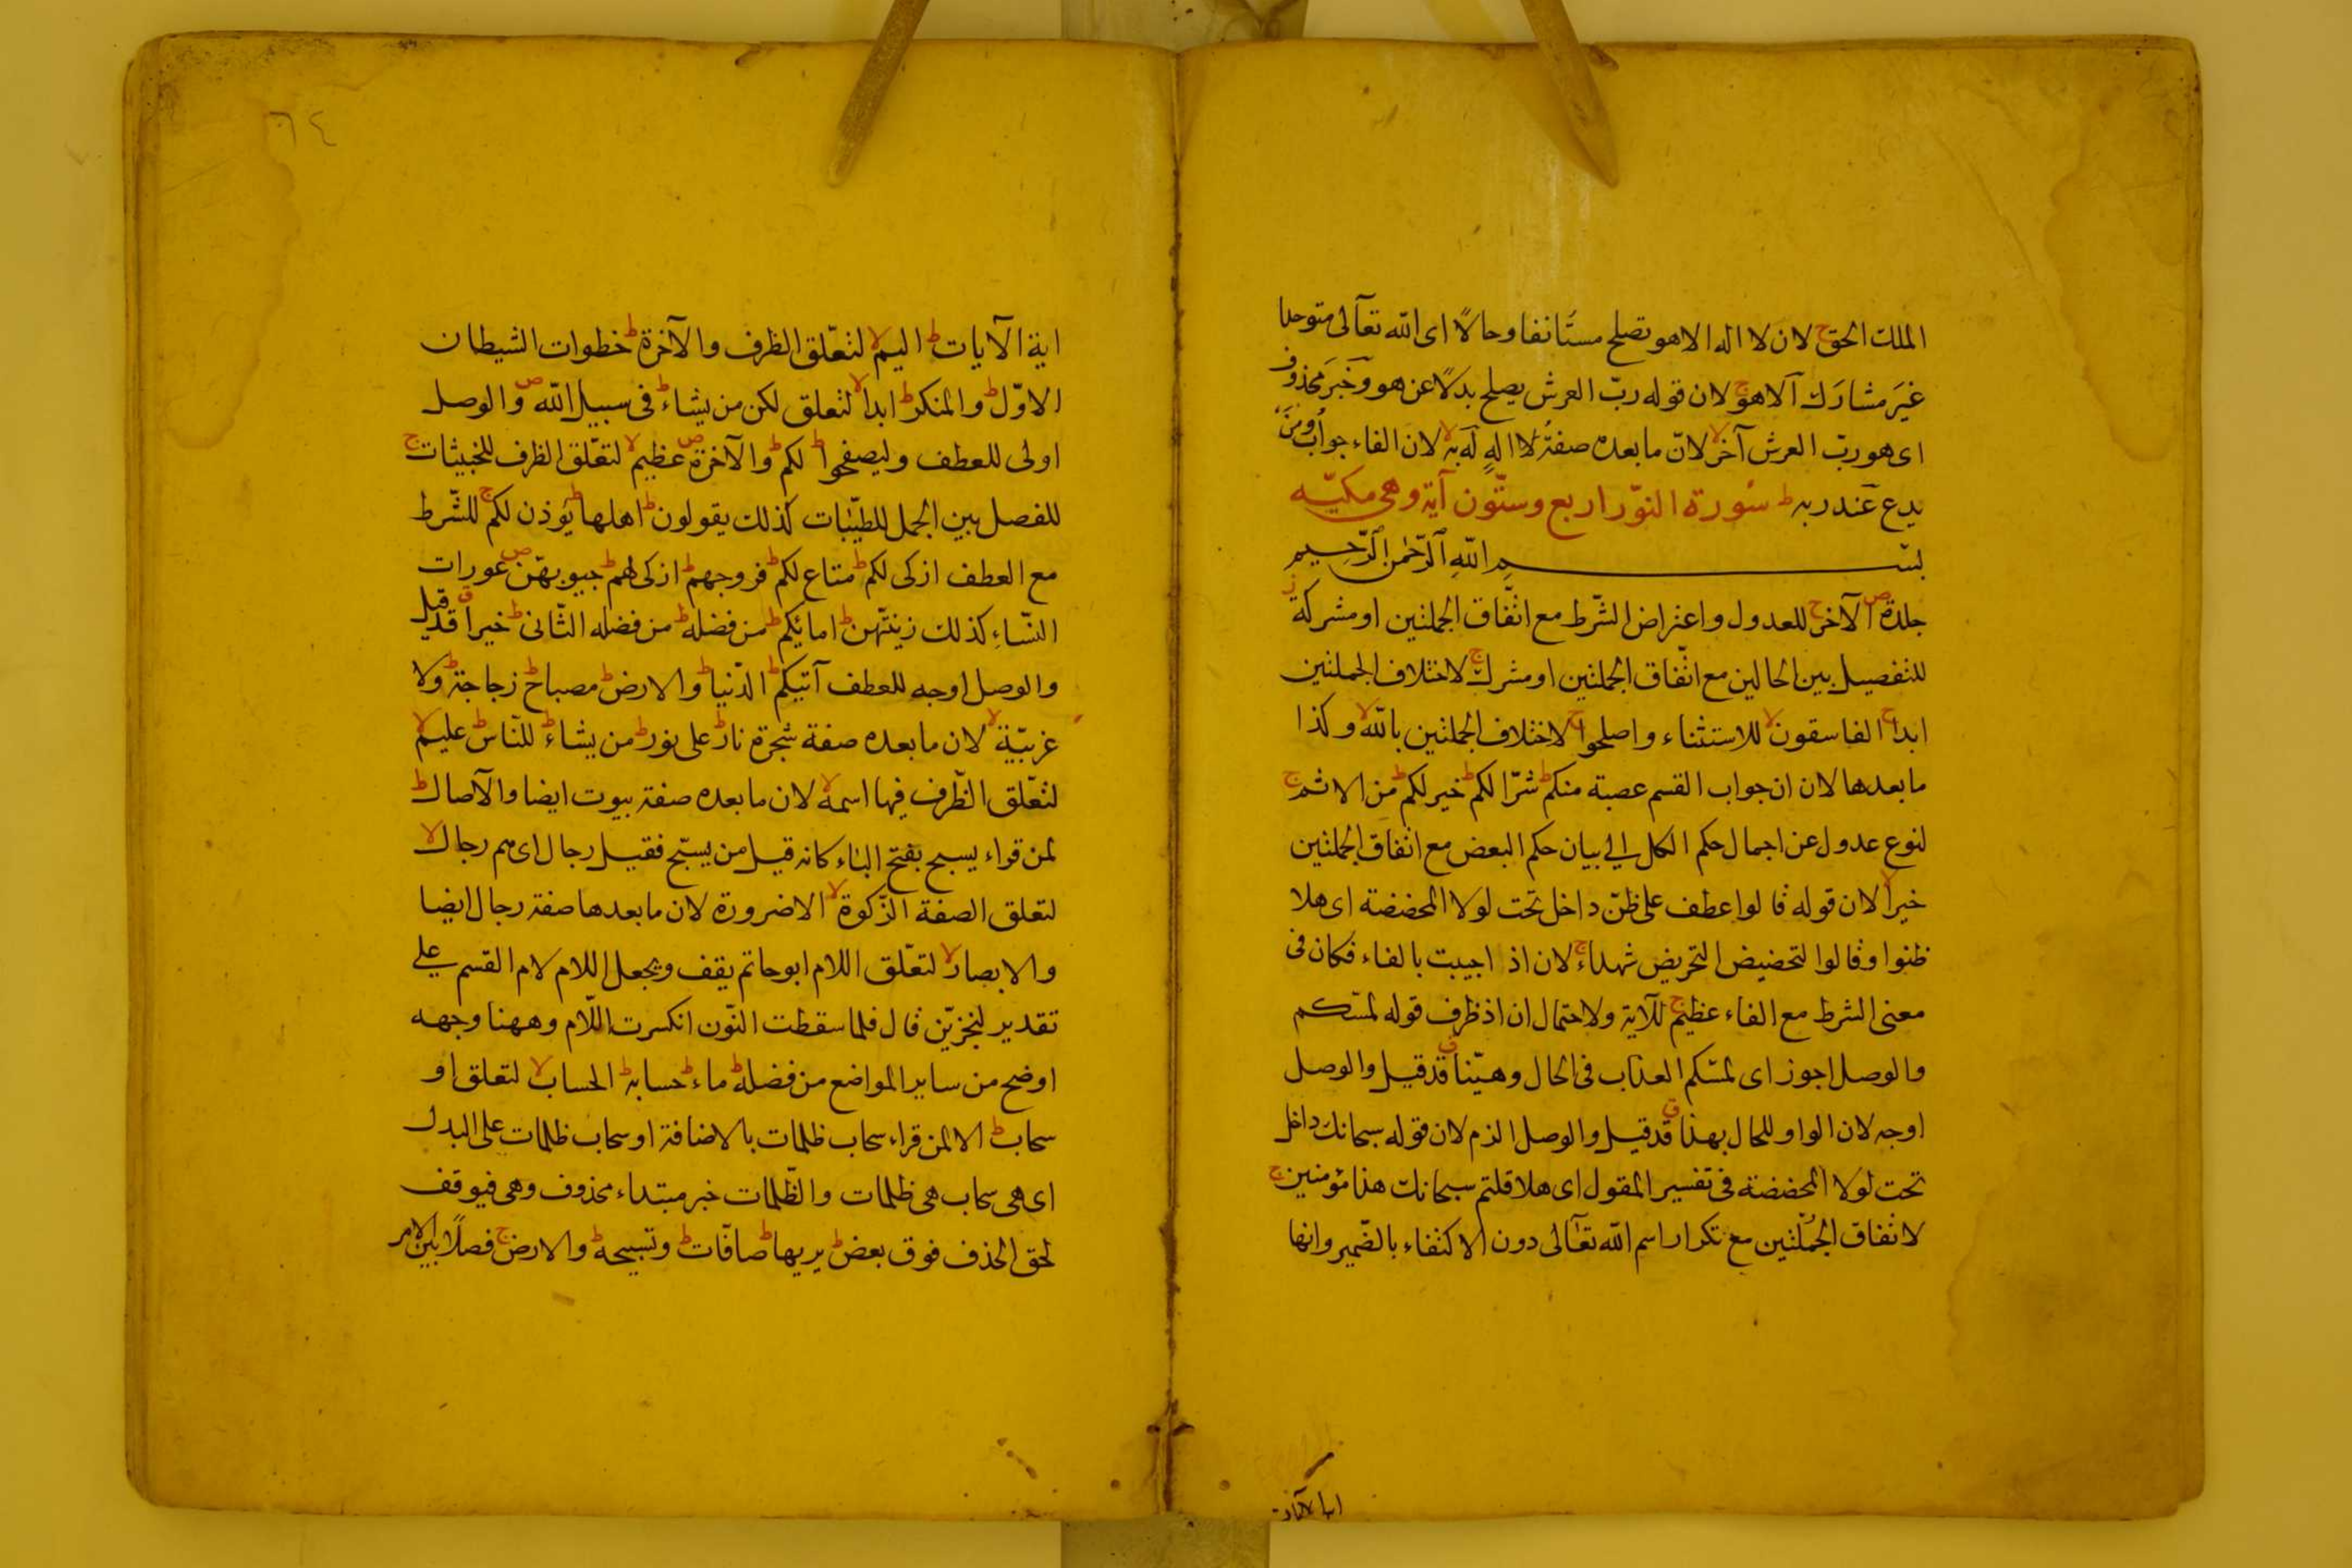 الملك الحق ج لان لا اله الا هو تصلح مستأنفا وحالًا اى الله تعالى متوحدا
غير مشارك الا هو ج لان قوله رب العرش يصلح بدلًا عن هو وخبر محذوف
اى هو رب العرش آخر لا لان ما بعده صفةُ الها الهٍ له به لا لان الفاء جواب ومن
يدع عند ربه ط سورة النّور اربع وستّون آية وهى مكيّه
بسم الله الرّحمن الرّحيم
جلدة ص الآخر ج للعدول واعتراض الشّرط مع اتّفاق الجملتين او مشركة ز
للتفصيل بين الحالين مع اتّفاق الجملتين او مشرك ج لاختلاف الجملتين
ابدا ج الفاسقون لا للاستثناء واصلحوا ج لاختلاف الجملتين بالله لا وكذا
ما بعدها لان ان جواب القسم عصبة منكم ط شرّا لكم ط خير لكم ط من الاثم ج
لنوع عدول عن اجمال حكم الكل الي بيان حكم البعض مع اتفاق الجملتين
خيرا لا لان قوله قالوا عطف على ظنّ داخل تحت لولا المحضضة اى هلا
ظنوا وقالوا لتحضيض التحريض شهداء ج لان اذ اجيبت بالفاء فكان فى
معنى الشرط مع الفاء عظيم ج للآية ولاحتمال ان اذ ظرف قوله لمسّكم
والوصل اجوز اى لمسّكم العذاب فى الحال وهيّنا ق قد قيل والوصل
اوجه لان الواو للحال بهذا ق قد قيل والوصل الزم لان قوله سبحانك داخل
تحت لولا المحضضة فى تفسير المقول اى هلا قلتم سبحانك هذا مؤمنين ج
لاتفاق الجملتين مع تكرار اسم الله تعالى دون الاكتفاء بالضّمير وانها
اية الآيات
٦٤
اية الآيات ط اليم لا لتعّلق الظرف والآخرة ط خطوات الشيطان
الاوّل ط والمنكر ط ابدا لا لتعلق لكن من يشاء ط فى سبيل الله ص والوصل
اولى للعطف وليصفحوا ط لكم ط والآخرة ص عظيم لا لتعّلق الظرف للخبيثات ج
للفصل بين الجمل للطيّبات كذلك يقولون ط اهلها ط يؤذن لكم ج للشّرط
مع العطف ازكى لكم ط متاع لكم ط فروجهم ط ازكى لهم ط جيوبهنّ ص عورات
النّساءِ كذلك زينتهن ط امائكم ط من فضله ط من فضله الثّانى ط خيرا ق قد قيل
والوصل اوجه للعطف آتيكم ط الدّنيا ط والارض ط مصباح ط زجاجة ط ولا
غربيّة لا لان ما بعده صفة شجرة نار ط على نور ط من يشاء ط للنّاس ط عليم لا
لتعّلق الظّرف فيها اسمه لا لان ما بعده صفة بيوت ايضا والآصال ط
لمن قراء يسبح بفتح الباء كانه قيل من يسبّح فقيل رجال اى هم رجال لا
لتعلق الصفة الزّكوة لا الا ضرورة لان ما بعدها صفة رجال ايضا
والابصار لا لتعّلق اللام ابو حاتم يقف ويجعل اللام لام القسم على
تقدير ليجزيّن قال فلما سقطت النّون انكسرت اللّام وههنا وجهه
اوضح من ساير المواضع من فضله ط ماء ط حسابه ط الحساب لا لتعلق او
سحاب ط الا لمن قراء سحاب ظلمات بالاضافة او سحاب ظلمات على البدل
اى هى سحاب هى ظلمات والظّلمات خبر مبتداء محذوف وهى فيوقف
لحق الحذف فوق بعض ط يريها ط صافّات ط وتسبيحه ط والارض ج فصلًا بين الامر